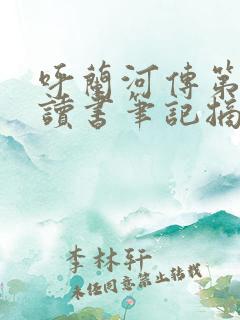 呼蘭河傳第
讀書筆記摘
李林軒
未经同意禁止转载